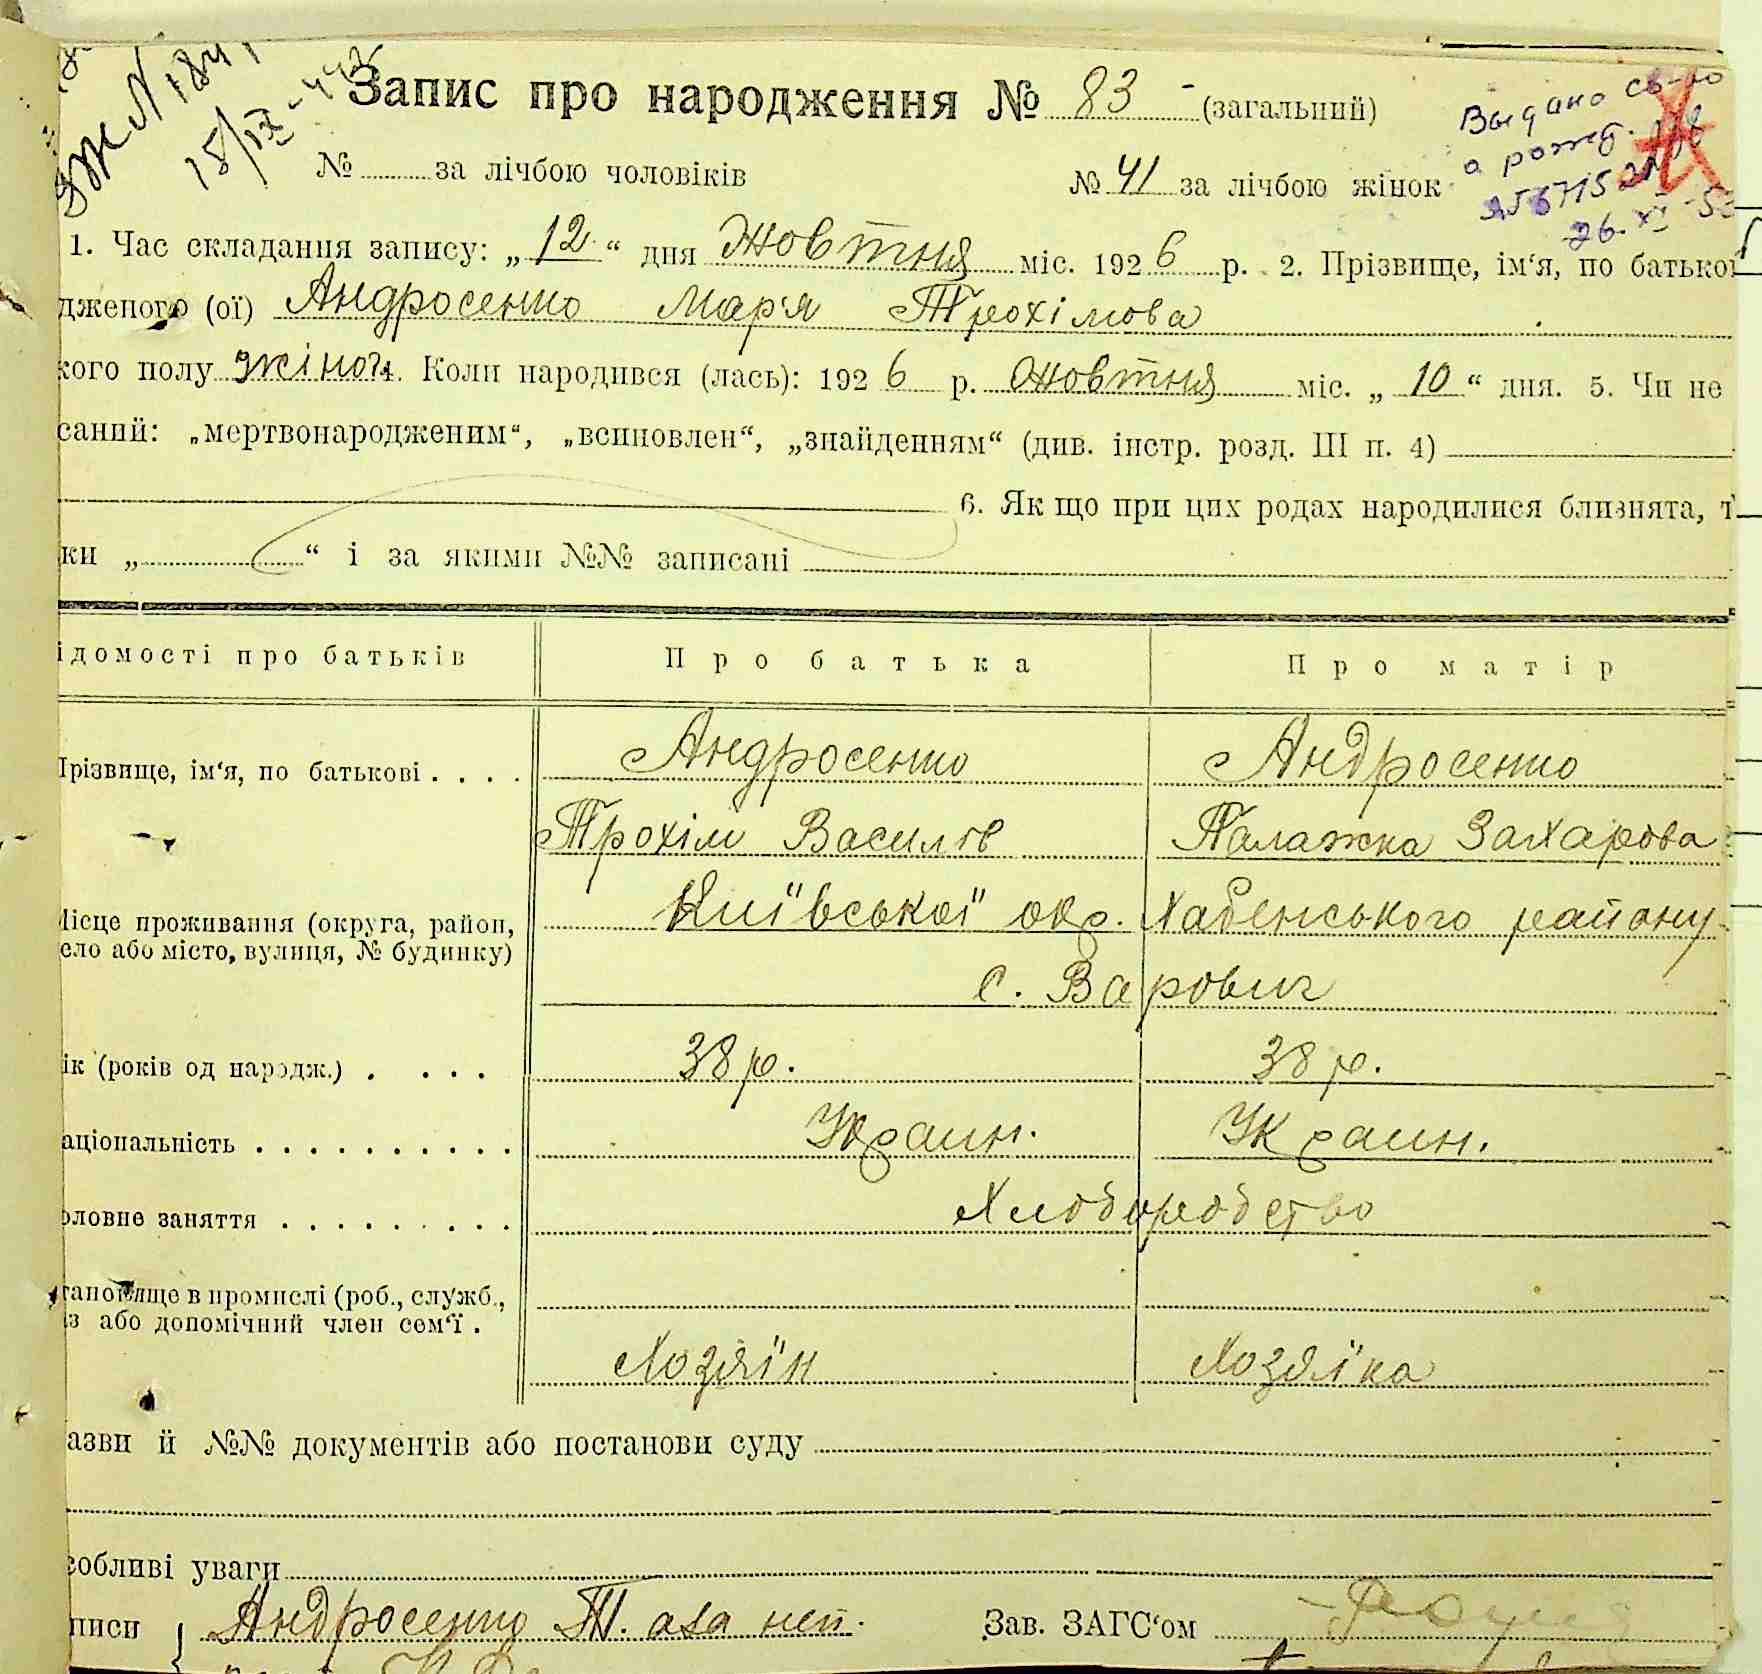 ЗЖ № 184
15/IX-44
Запис про народження № 83 - (загальний)
Выдано св-во
о рожд.
26.XI-53
№ за лічбою чоловіків № 41 за лічбою жінок
1. Час складання запису: „12“ дня Жовтня міс. 1926 р. 2. Прізвище, ім‘я, по батькові
дженого (ої) Андросенко Мар‘я Трохімова
кого полу жіноч. Коли народився (лась): 1926 р. Жовтня міс. „10“ дня. 5. Чи не
саний: „мертвонародженим“, „всиновлен“, „знайденням“ (див. інстр. розд. III п. 4)
6. Як що при цих родах народилися близнята, т
ки „ “ і за якими №№ записані
ідомості про батьків Про батька Про матір
Прізвище, ім‘я, по батькові . . . . Андросенко Андросенко
Трохім Василів Палажка Захарова
Місце проживання (округа, район, Київської окр. Хабенського району
ело або місто, вулиця, № будинку)
с. Варович
ік (років од народж.) . . . . 38 р. 38 р.
аціональність . . . . . . . . . . Украин. Украин.
оловне заняття . . . . . . . . . Хлоборобство
тановище в промислі (роб., служб.,
з або допомічний член сем‘ї . Хозяїн Хозяїка
азви й №№ документів або постанови суду
собливі уваги
писи Андросенко Т. а за неп. Зав. ЗАГС‘ом